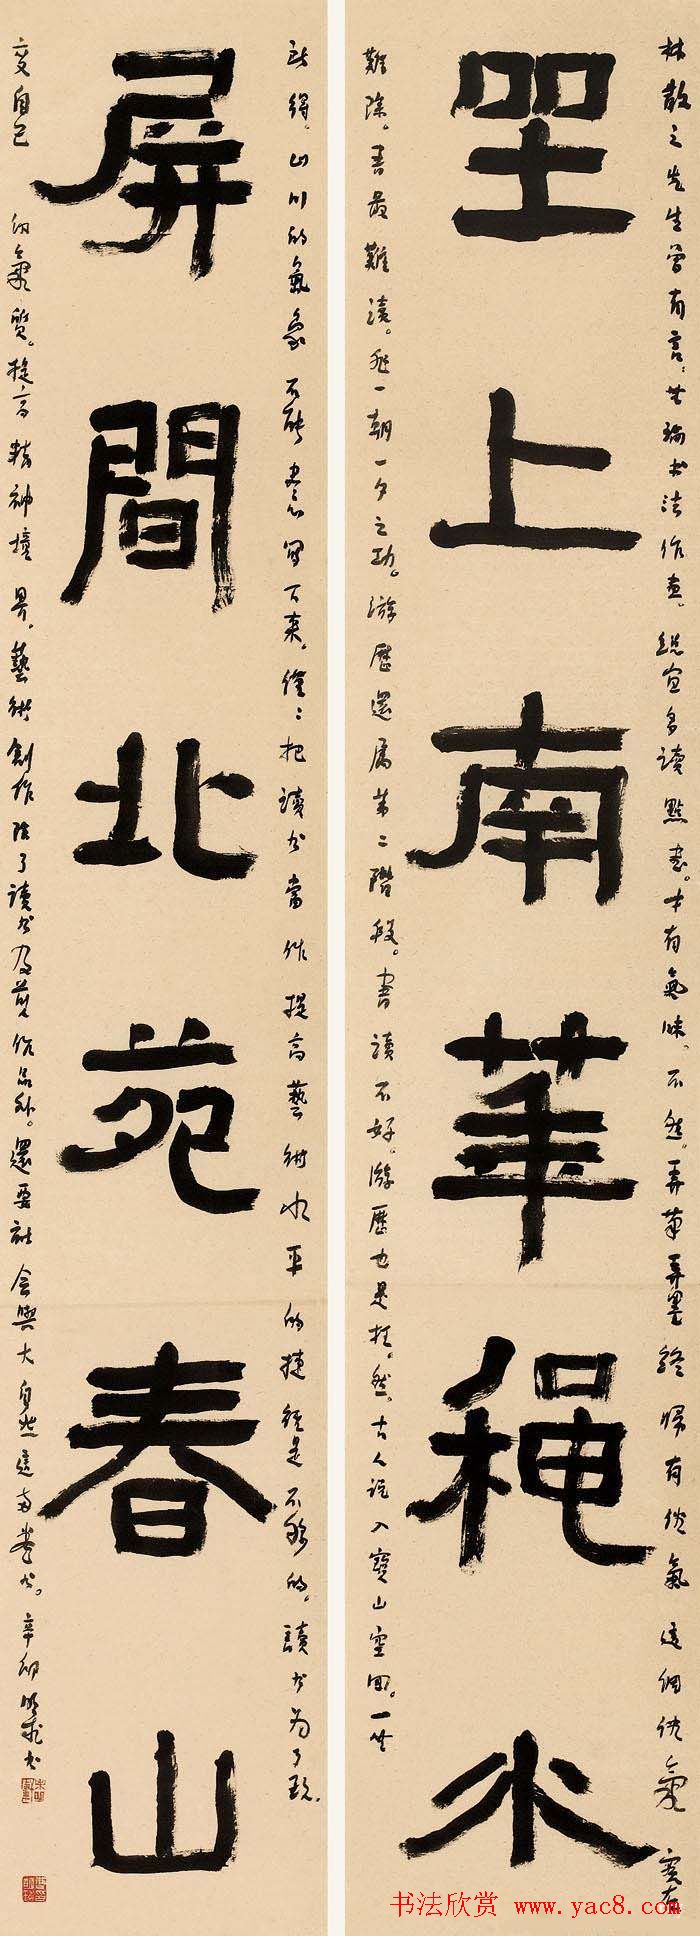 林散之先生曾有言：無論書法作畫，總宜多讀點書。才有氣味。不然，弄筆弄墨終歸有俗氣這個俗氣實在
坐上南華穐水
難除。書最難讀。非一朝一夕之功。游歷還屬第二階段。書讀不好。游歷也是枉然。古人說入寶山空回。一無
所得。山川的氣象不能盡寫下來。僅僅把讀書當作提高藝術水平的捷徑是不够的。讀書為了改
屏間北苑春山
變自己的氣質。提高精神境界。藝術創作除了讀書及作品外。還要社會與大自然這兩卷書。辛卯書
书法欣赏 www.yac8.com